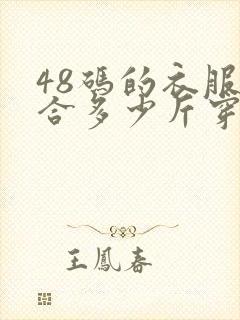 48碼的衣服
合多少斤穿
王鳳春